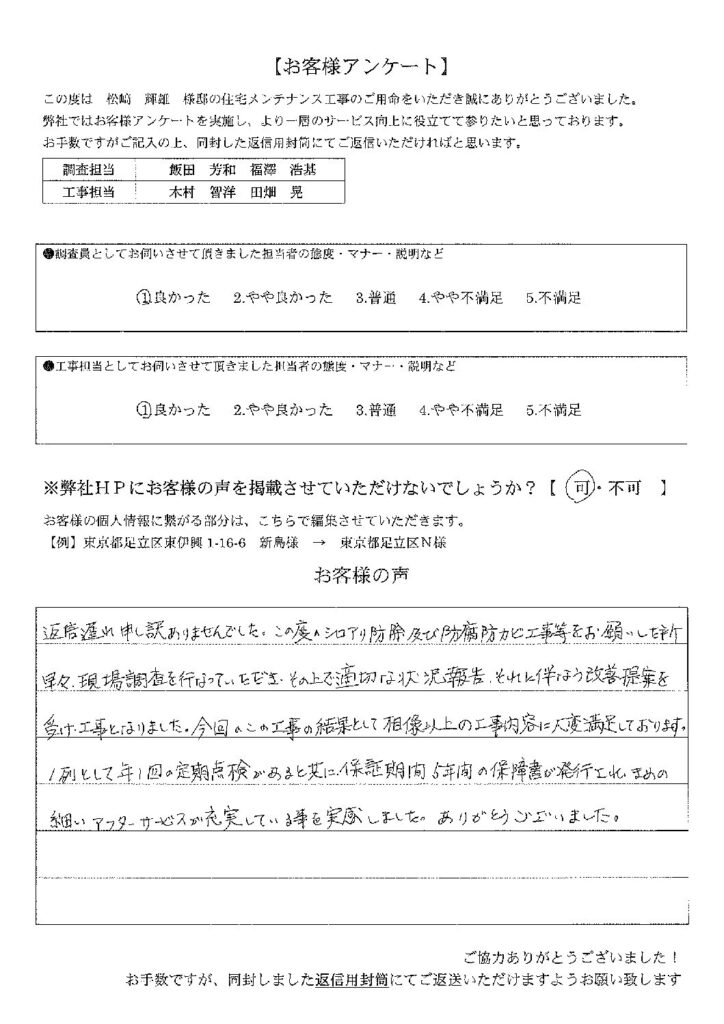 【お客様アンケート】
この度は 松崎 輝雄 様邸の住宅メンテナンス工事のご用命をいただき誠にありがとうございました。
弊社ではお客様アンケートを実施し、より一層のサービス向上に役立てて参りたいと思っております。
お手数ですがご記入の上、同封した返信用封筒にてご返信いただければと思います。
調査担当 飯田 芳和 福澤 浩基
工事担当 木村 智洋 田畑 晃
●調査員としてお伺いさせて頂きました担当者の態度・マナー・説明など
①良かった 2.やや良かった 3.普通 4.やや不満足 5.不満足
●工事担当としてお伺いさせて頂きました担当者の態度・マナー・説明など
①良かった 2.やや良かった 3.普通 4.やや不満足 5.不満足
※弊社HPにお客様の声を掲載させていただけないでしょうか?【 可・不可 】
お客様の個人情報に繋がる部分は、こちらで編集させていただきます。
【例】東京都足立区東伊興 1-16-6 新島様 → 東京都足立区N様
お客様の声
返信遅れ申し訳ありませんでした。この度のシロアリ防除及び防腐防カビ工事等をお願いした所
早々、現場調査を行なっていただき、その上で適切な状況報告、それに伴なう改善提案を
受け工事となりました。今回のこの工事の結果として相像以上の工事内容に大変満足しております。
1例として年1回の定期点検があると共に、保証期間5年間の保障書が発行され、きめの
細いアフターサービスが充実している事を実感しました。ありがとうございました。
ご協力ありがとうございました!
お手数ですが、同封しました返信用封筒にてご返送いただけますようお願い致します